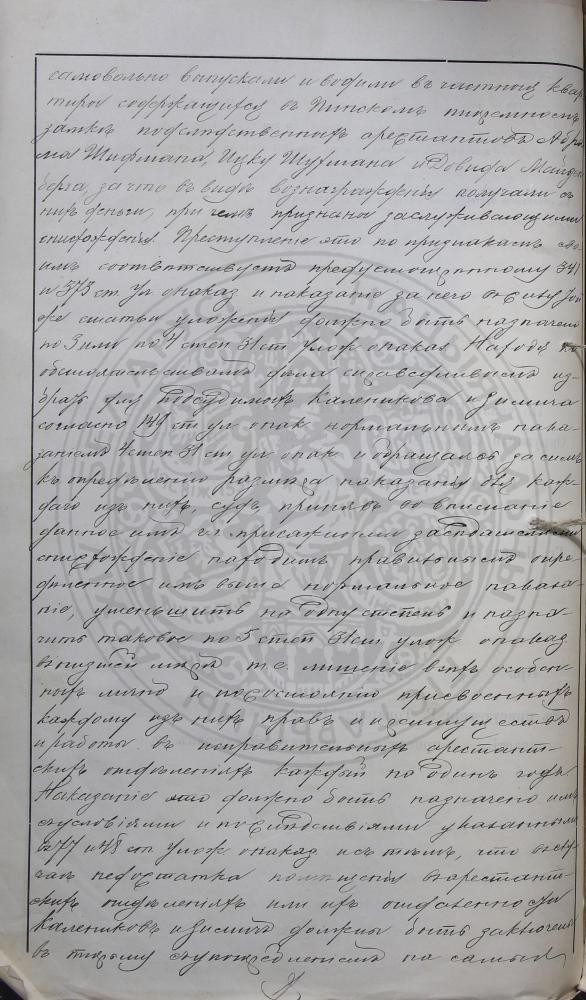 самовольно выпускали и водили въ частныя квар
тиры содержащихся въ Пинскомъ тюремномъ
замкѣ подслѣдственныхъ арестантовъ Абра
ма Шифмана, Ицку Шухмана и Довида Майдем
берга, за что въ видѣ вознагражденія получали съ
нихъ деньги, при чемъ признаны заслуживающими
снисхожденія. Преступленіе это по признакамъ сво
имъ соотвѣтствуетъ предусмотрѣнному 341
и 373 ст Ул о наказ и наказаніе за него въ силу той
же статьи уложенія должно быть назначено
по 3 или по 4 степ 31 ст Улож о наказ. Находя по
обстоятельствамъ дѣла справедливымъ из
брать для подсудимыхъ Каленикова и Зимича
согласно 149 ст ул о нак нормальнымъ нака
заніемъ 4 степ 31 ст ул о нак и обращаясь засимъ
къ опредѣленію размѣра наказанія для каж
даго изъ нихъ, судъ, принявъ во вниманіе
данное имъ г.г. присяжными засѣдателями
снисхожденіе находитъ правильнымъ опре
дѣленное имъ выше нормальное наказа
ніе, уменьшить на одну степень и назна
чить таковое по 5 степ 31 ст улож о наказ.
въ низшей мѣрѣ т.е. лишеніе всѣхъ особен
ныхъ лично и по состоянію присвоенныхъ
каждому изъ нихъ правъ и преимуществъ
и работы въ исправительныхъ арестант-
скихъ отдѣленіяхъ каждый на одинъ годъ.
Наказаніе это должно быть назначено имъ
съ условіями и послѣдствіями указанными
въ 77 и 48 ст Улож о наказ и съ тѣмъ, что въ слу
чаѣ недостатка помѣщенія въ арестант-
скихъ отдѣленіяхъ или ихъ отдаленности
Калениковъ и Зимичъ должны быть заключены
въ тюрьму съ употребленіемъ на самыя